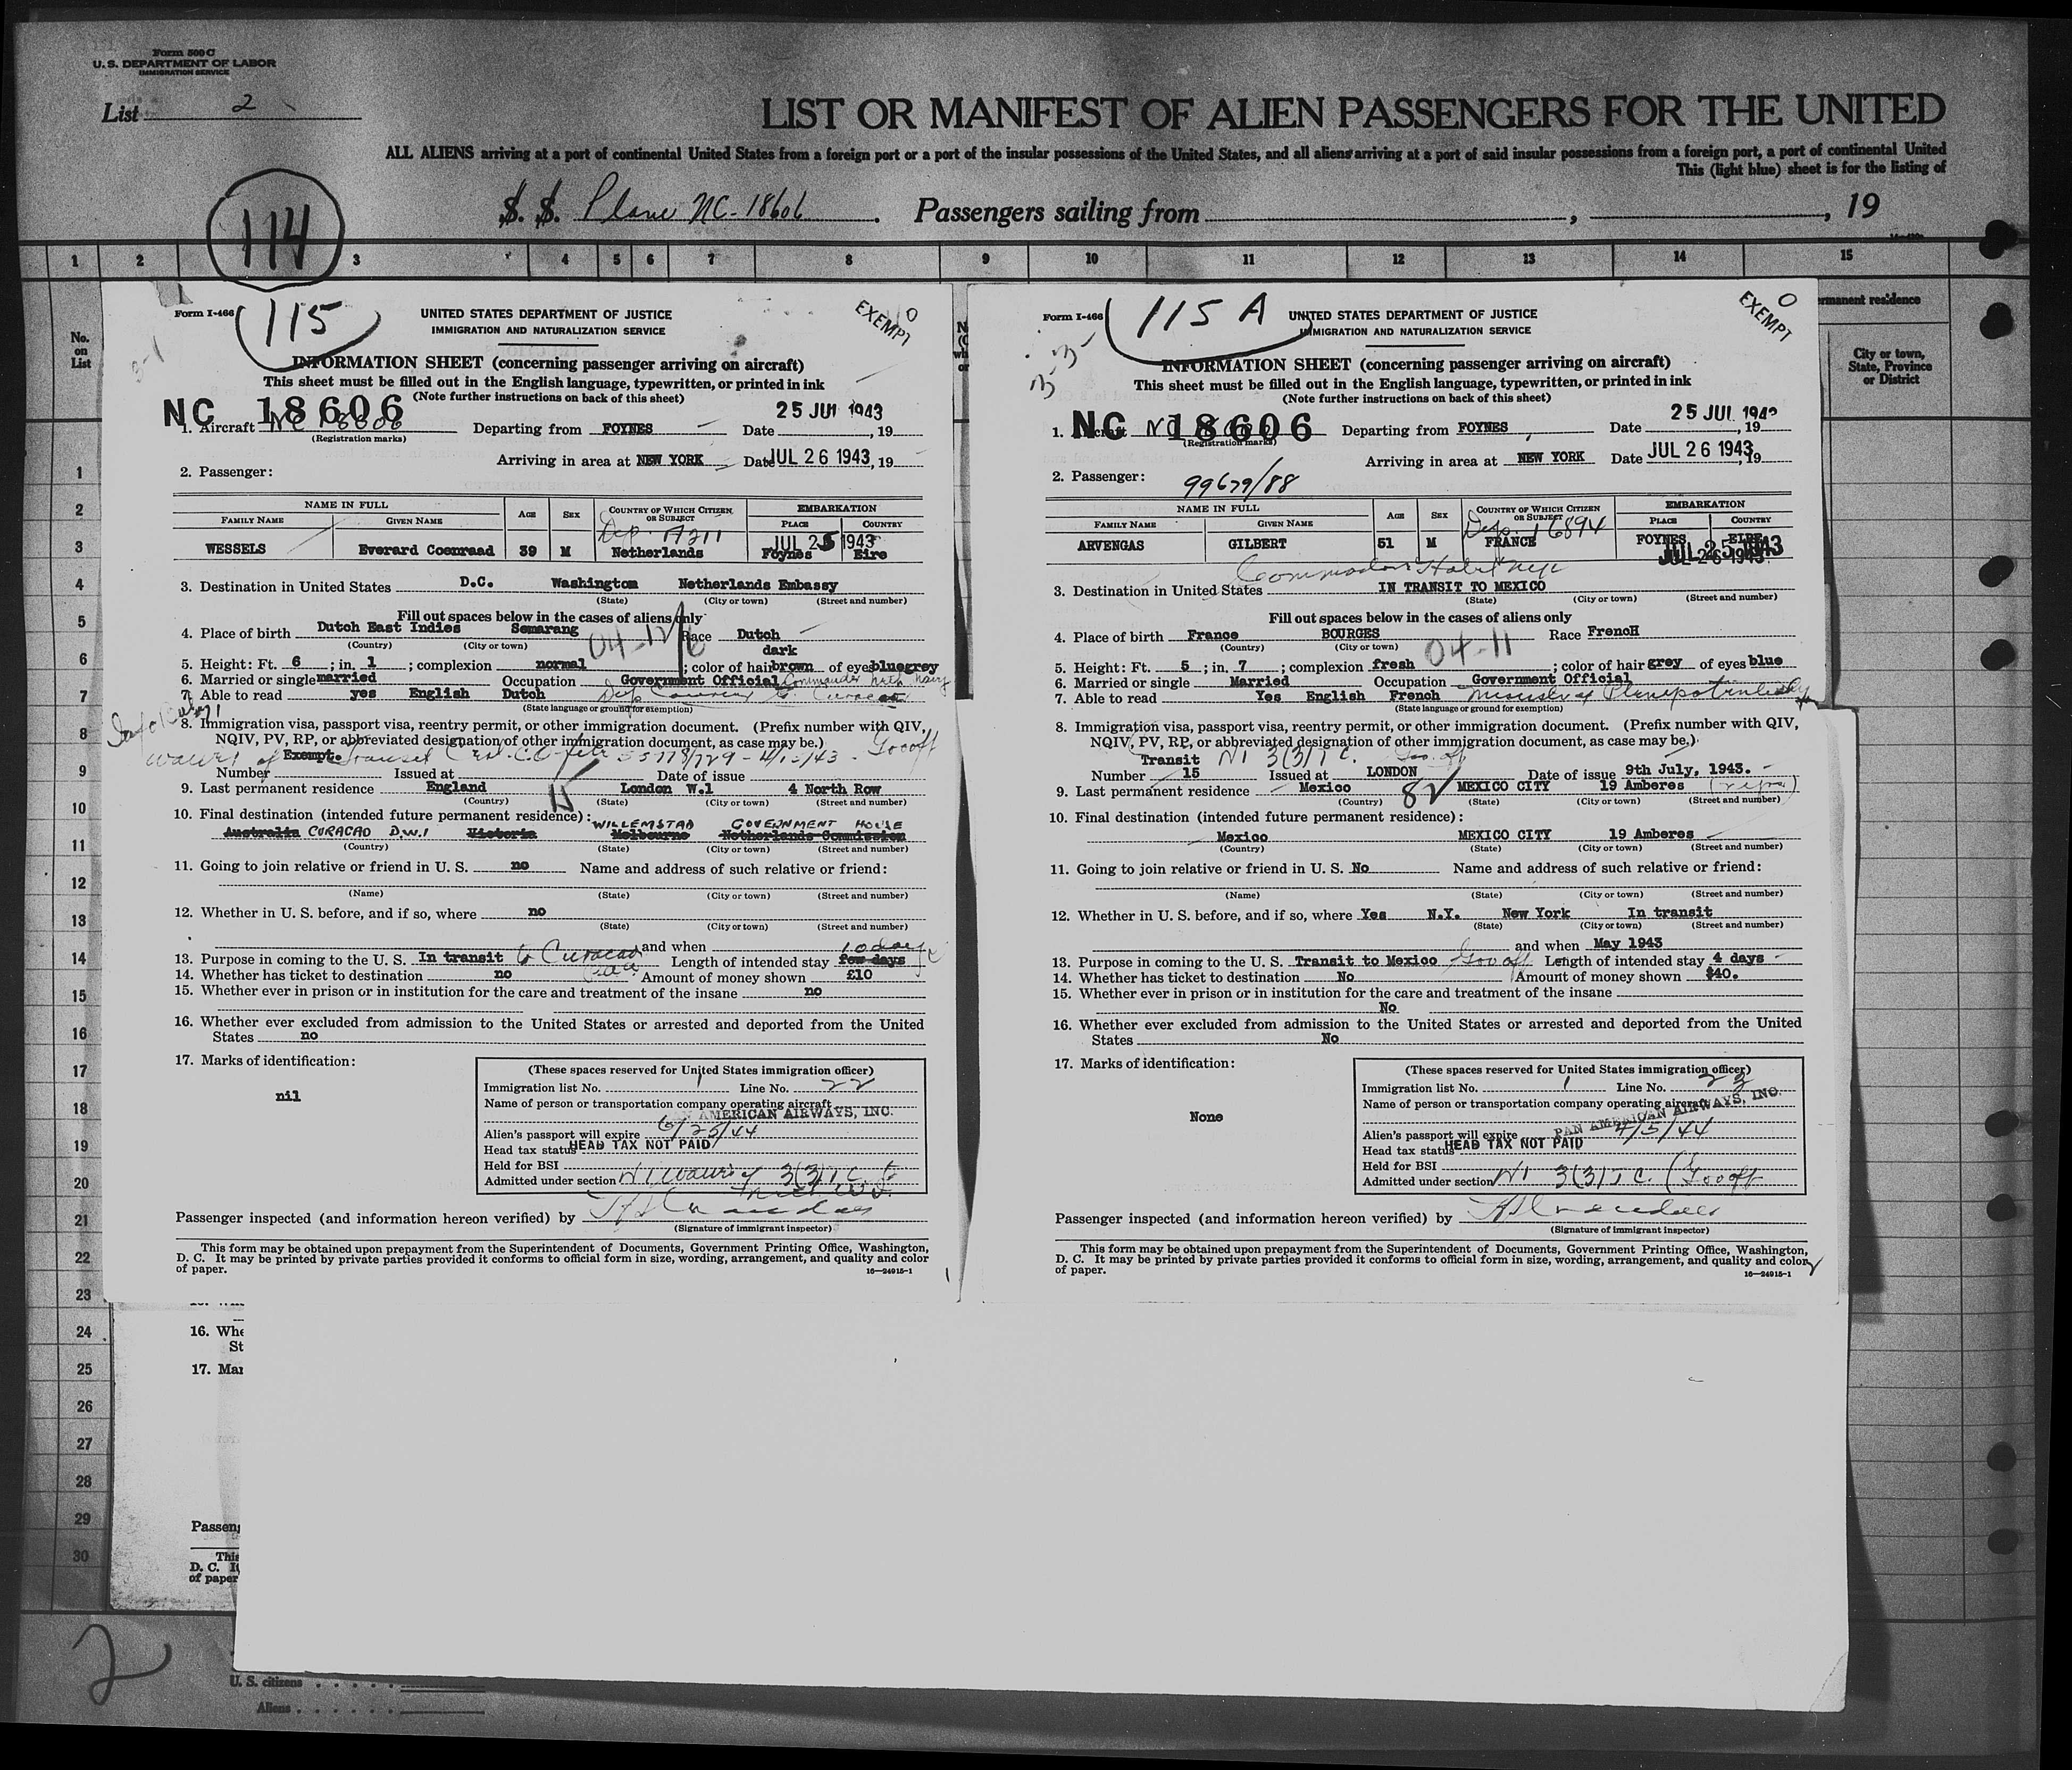 Form 500 C
U. S. DEPARTMENT OF LABOR
IMMIGRATION SERVICE
List 2
LIST OR MANIFEST OF ALIEN PASSENGERS FOR THE UNITED
ALL ALIENS arriving at a port of continental United States from a foreign port or a port of the insular possessions of the United States, and all aliens arriving at a port of said insular possessions from a foreign port, a port of continental United
This (light blue) sheet is for the listing of
S. S. Plane NC-18606 . Passengers sailing from , , 19
114
1 2 3 4 5 6 7 8 9 10 11 12 13 14 15
No. on List
permanent residence
City or town, State, Province or District
1
2
3
4
5
6
7
8
9
10
11
12
13
14
15
16
17
18
19
20
21
22
23
24
25
26
27
28
29
30
Form I-466
115
UNITED STATES DEPARTMENT OF JUSTICE
IMMIGRATION AND NATURALIZATION SERVICE
EXEMPT
INFORMATION SHEET (concerning passenger arriving on aircraft)
This sheet must be filled out in the English language, typewritten, or printed in ink
(Note further instructions on back of this sheet)
NC 18606 25 JUL 1943
1. Aircraft Departing from FOYNES Date , 19
(Registration marks)
Arriving in area at NEW YORK Date JUL 26 1943, 19
2. Passenger:
NAME IN FULL AGE SEX COUNTRY OF WHICH CITIZEN OR SUBJECT EMBARKATION
FAMILY NAME GIVEN NAME PLACE COUNTRY
JUL 25 1943
WESSELS Everard Coenraad 39 M Netherlands Foynes Eire
3. Destination in United States D.C. Washington Netherlands Embassy
(State) (City or town) (Street and number)
Fill out spaces below in the cases of aliens only
4. Place of birth Dutch East Indies Semarang Race Dutch
(Country) (City or town)
04-12
dark
5. Height: Ft. 6 ; in. 1 ; complexion normal ; color of hair brown of eyes bluegrey
6. Married or single married Occupation Government Official Commander Neth Navy
7. Able to read yes English Dutch
(State language or ground for exemption)
8. Immigration visa, passport visa, reentry permit, or other immigration document. (Prefix number with QIV,
NQIV, PV, RP, or abbreviated designation of other immigration document, as case may be.)
Exempt.
Number Issued at Date of issue
9. Last permanent residence England London W.1 4 North Row
(Country) (State) (City or town) (Street and number)
10. Final destination (intended future permanent residence):
WILLEMSTAD GOVERNMENT HOUSE
Australia CURACAO D.W.I Victoria Melbourne Netherlands Commission
(Country) (State) (City or town) (Street and number)
11. Going to join relative or friend in U. S. no Name and address of such relative or friend:
(Name) (State) (City or town) (Street and number)
12. Whether in U. S. before, and if so, where no
(State) (City or town) (Street and number)
and when
10 days
13. Purpose in coming to the U. S. In transit to Curacao Length of intended stay few days
14. Whether has ticket to destination no Amount of money shown £10
15. Whether ever in prison or in institution for the care and treatment of the insane no
16. Whether ever excluded from admission to the United States or arrested and deported from the United
States no
17. Marks of identification:
nil
(These spaces reserved for United States immigration officer)
Immigration list No. 1 Line No. 22
Name of person or transportation company operating aircraft
PAN AMERICAN AIRWAYS, INC.
Alien's passport will expire 6/25/44
Head tax status HEAD TAX NOT PAID
Held for BSI
Admitted under section 3(3)
Passenger inspected (and information hereon verified) by
(Signature of immigrant inspector)
This form may be obtained upon prepayment from the Superintendent of Documents, Government Printing Office, Washington,
D. C. It may be printed by private parties provided it conforms to official form in size, wording, arrangement, and quality and color
of paper.
16—24915-1
Form I-466
115 A
UNITED STATES DEPARTMENT OF JUSTICE
IMMIGRATION AND NATURALIZATION SERVICE
EXEMPT
3-3-
INFORMATION SHEET (concerning passenger arriving on aircraft)
This sheet must be filled out in the English language, typewritten, or printed in ink
(Note further instructions on back of this sheet)
NC 18606 25 JUL 1943
1. Aircraft Departing from FOYNES Date , 19
(Registration marks)
Arriving in area at NEW YORK Date JUL 26 1943, 19
2. Passenger: 99679/88
NAME IN FULL AGE SEX COUNTRY OF WHICH CITIZEN OR SUBJECT EMBARKATION
FAMILY NAME GIVEN NAME PLACE COUNTRY
16894
ARVENGAS GILBERT 51 M FRANCE FOYNES EIRE
JUL 25 1943
Commodore Hotel NYC
3. Destination in United States IN TRANSIT TO MEXICO
(State) (City or town) (Street and number)
Fill out spaces below in the cases of aliens only
4. Place of birth France BOURGES Race FrencH
(Country) (City or town)
04-11
5. Height: Ft. 5 ; in. 7 ; complexion fresh ; color of hair grey of eyes blue
6. Married or single Married Occupation Government Official
7. Able to read Yes English French Minister Plenipotentiary
(State language or ground for exemption)
8. Immigration visa, passport visa, reentry permit, or other immigration document. (Prefix number with QIV,
NQIV, PV, RP, or abbreviated designation of other immigration document, as case may be.)
Transit
Number 15 Issued at LONDON Date of issue 9th July, 1943.
9. Last permanent residence Mexico MEXICO CITY 19 Amberes
(Country) (State) (City or town) (Street and number)
10. Final destination (intended future permanent residence):
Mexico MEXICO CITY 19 Amberes
(Country) (State) (City or town) (Street and number)
11. Going to join relative or friend in U. S. No Name and address of such relative or friend:
(Name) (State) (City or town) (Street and number)
12. Whether in U. S. before, and if so, where Yes N.Y. New York In transit
(State) (City or town) (Street and number)
and when May 1943
13. Purpose in coming to the U. S. Transit to Mexico Length of intended stay 4 days
14. Whether has ticket to destination No Amount of money shown $40.
15. Whether ever in prison or in institution for the care and treatment of the insane
No
16. Whether ever excluded from admission to the United States or arrested and deported from the United
States No
17. Marks of identification:
None
(These spaces reserved for United States immigration officer)
Immigration list No. 1 Line No. 23
Name of person or transportation company operating aircraft
PAN AMERICAN AIRWAYS, INC.
Alien's passport will expire 4/5/44
Head tax status HEAD TAX NOT PAID
Held for BSI
Admitted under section 3(3)
Passenger inspected (and information hereon verified) by
(Signature of immigrant inspector)
This form may be obtained upon prepayment from the Superintendent of Documents, Government Printing Office, Washington,
D. C. It may be printed by private parties provided it conforms to official form in size, wording, arrangement, and quality and color
of paper.
16—24915-1
16. Whe
St
17. Mar
Passeng
This
D. C. It
of paper
2
U. S. citizens
Aliens